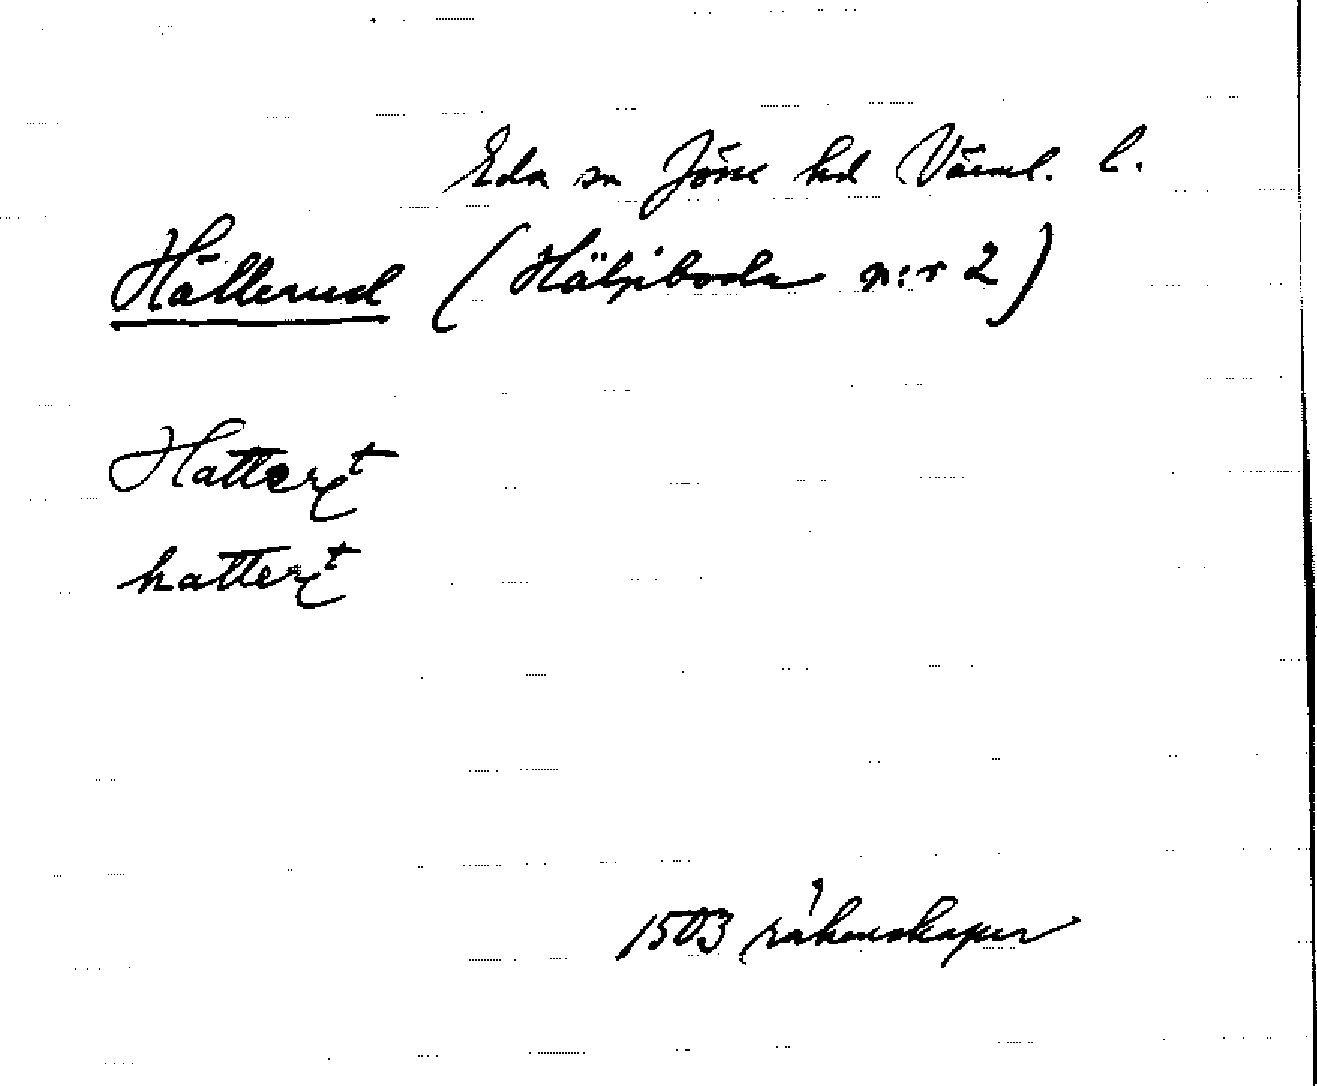 Eda sn Jösse hd Värml. l.
Hällerud (Hälsiboda n:r 2)
Hatter t
hatter t
1503 räkenskaper